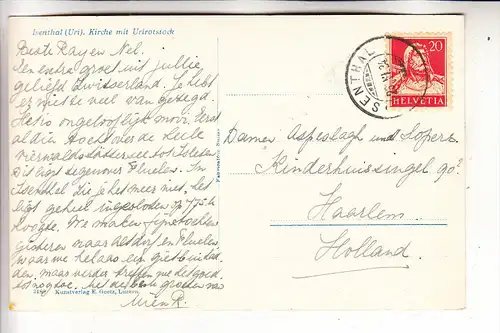 Isenthal (Uri). Kirche mit Urirotstock
Beste Ray en Nel.
Een extra groet uit jullie
geliefd Zwitserland. Je hebt
er niet te veel van gezegd.
Het is ongelooflijk mooi. Vooral
al die tocht over de heele
Vierwaldstättersee tot Isleten
Dit ligt tegenover Fluelen. In
Isenthal zie je het meer niet, het
ligt geheel ingesloten op 775 h
hoogte. We maken fijne tochten
gisteren naar Altdorf en Fluelen,
waar we helaas een gietbui
maar verder treffen we het goed
tot nog toe. Met de beste groeten van
Mien R.
Kunstverlag E. Goetz, Luzern
ISENTHAL
20
HELVETIA
Damen Aspeslagh und Lopers
Kinderhuissingel 90
Haarlem
Holland.